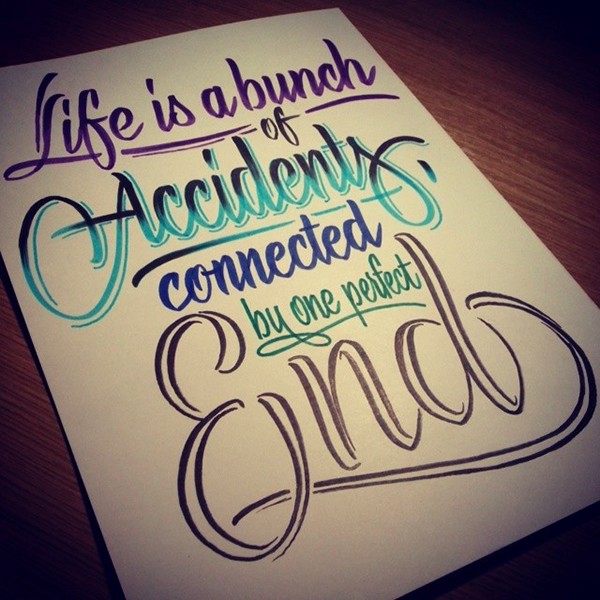 Life is a bunch
of
Accidents,
connected
by one perfect
End